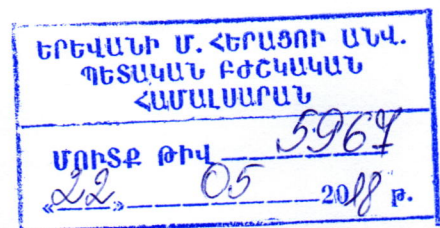 ԵՐԵՎԱՆԻ Մ. ՀԵՐԱՑՈՒ ԱՆՎ.
ՊԵՏԱԿԱՆ ԲԺՇԿԱԿԱՆ
ՀԱՄԱԼՍԱՐԱՆ
ՄՈՒՏՔ ԹԻՎ 5967
«22» 05 2018 թ.